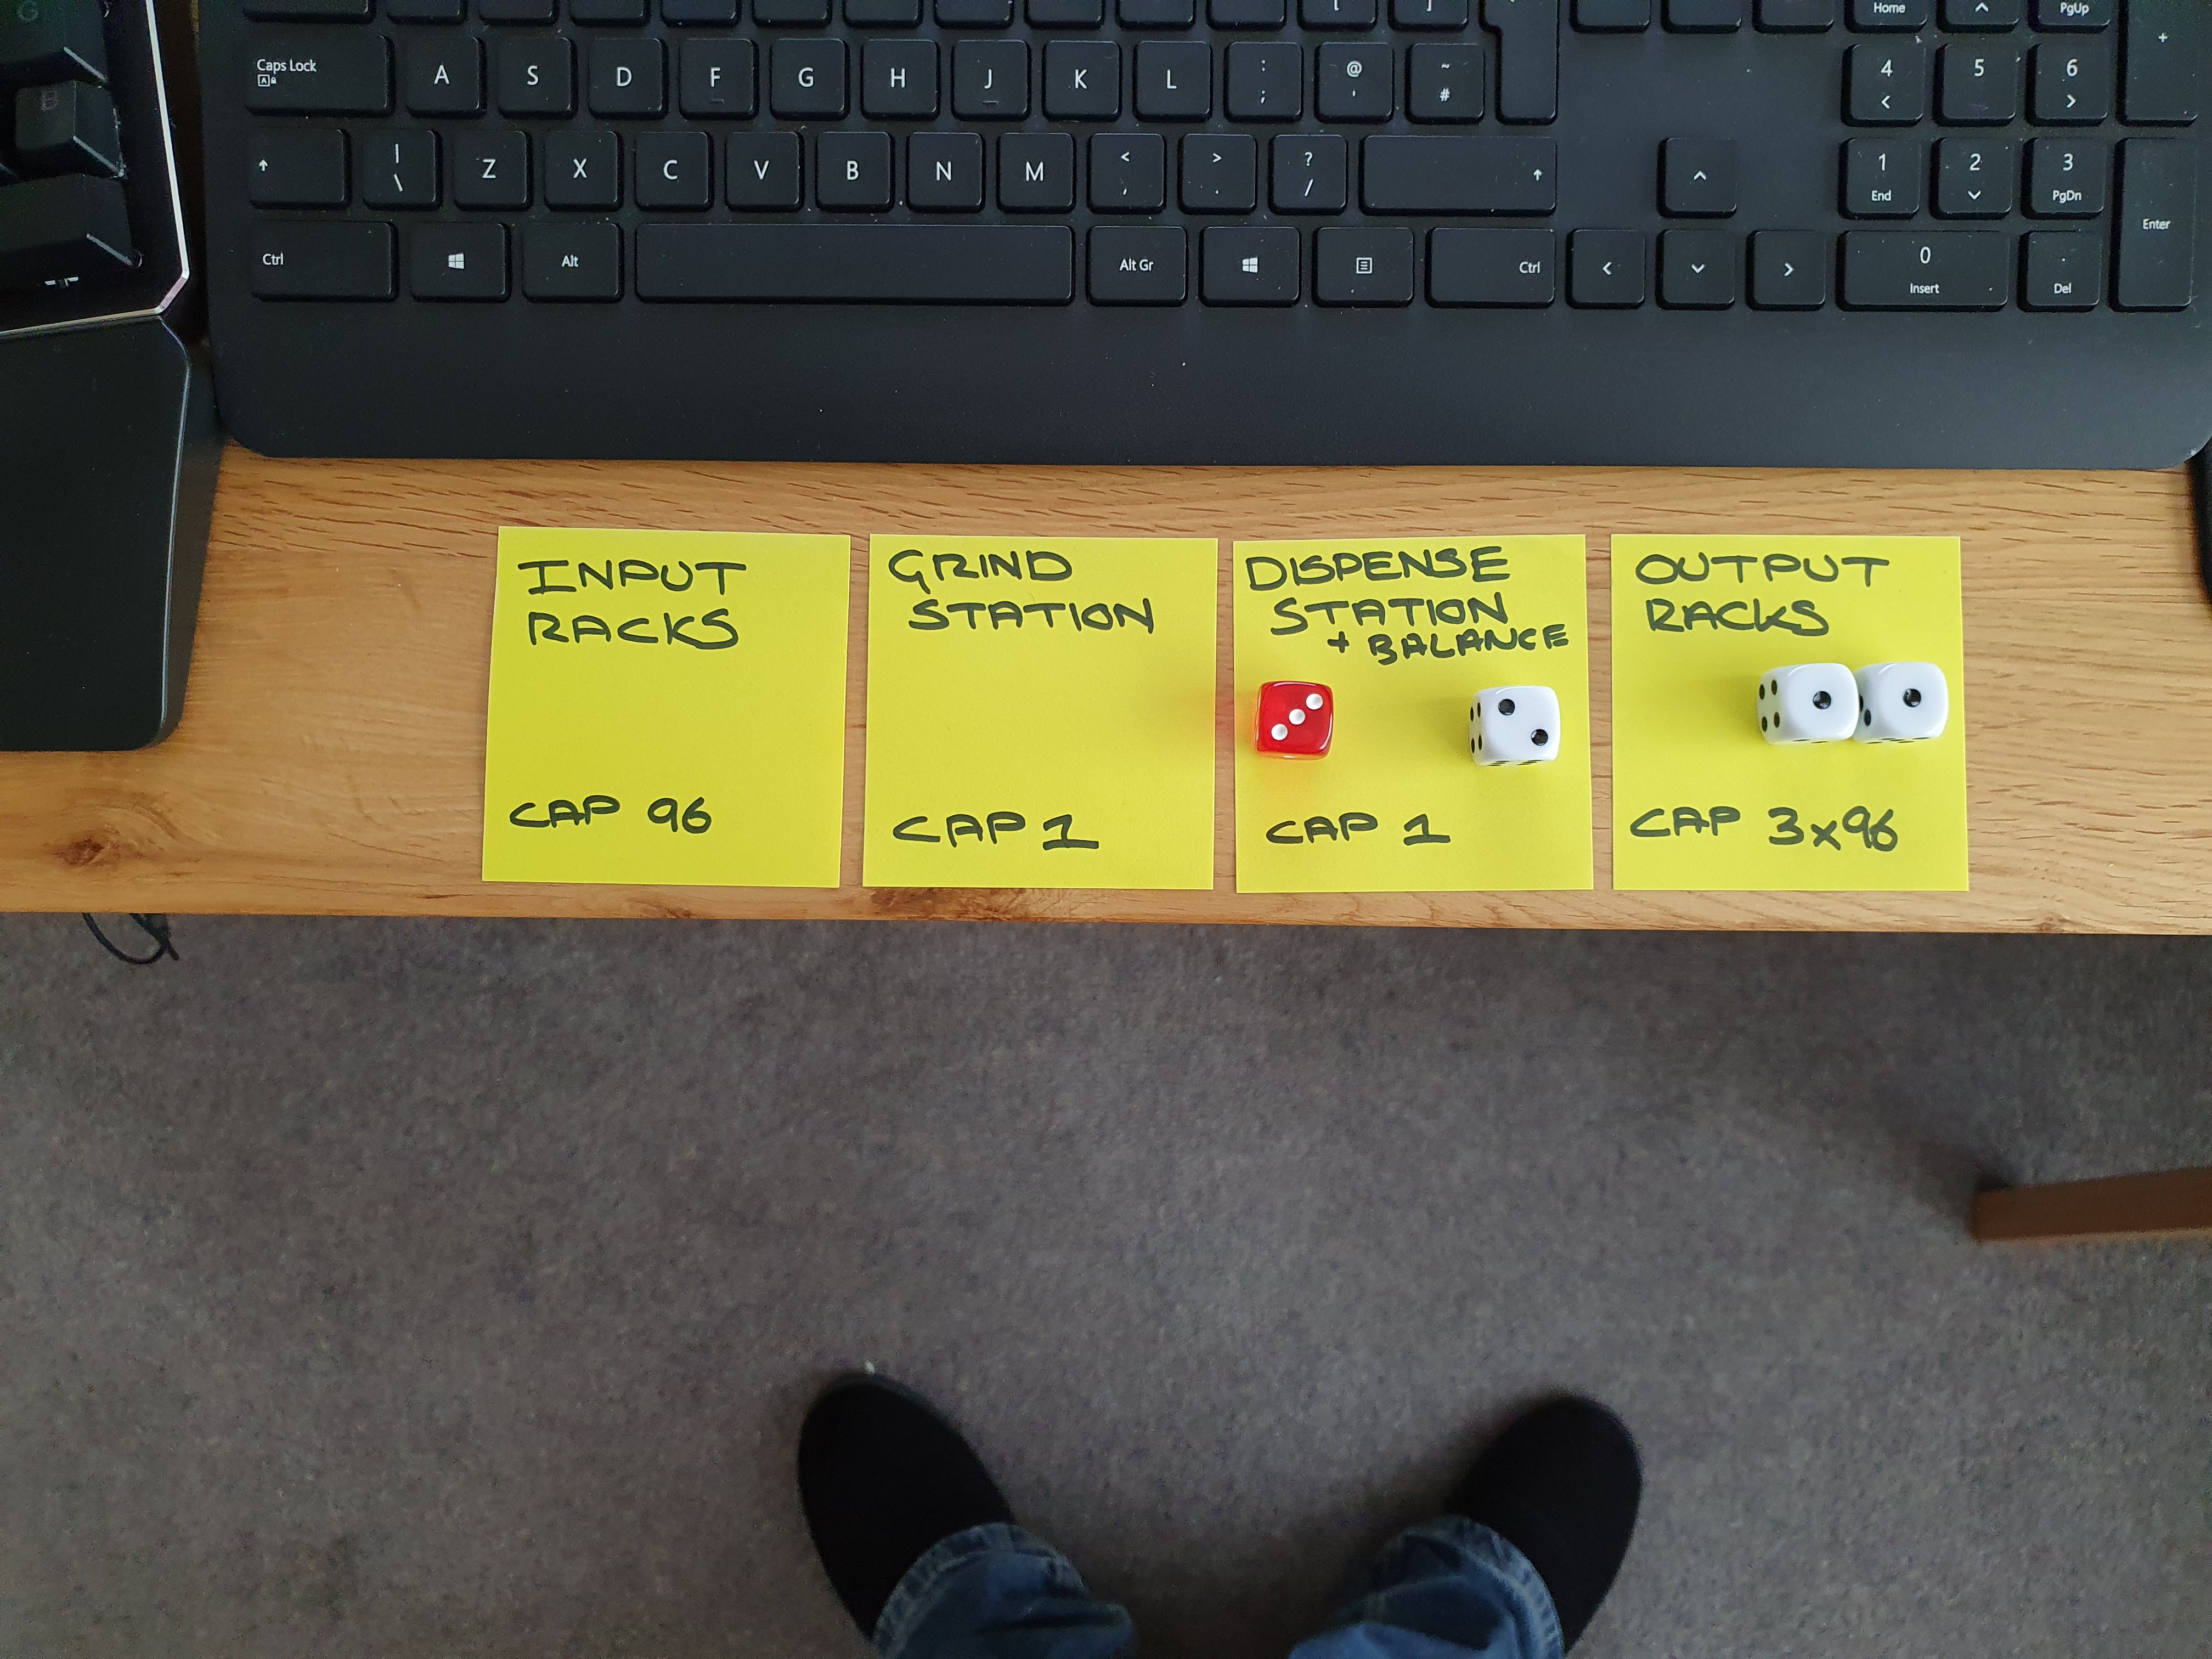 Home
PgUp
+
Caps Lock
A
S
D
F
G
H
J
K
L
:
;
@
'
~
#
4
<
5
6
>
|
\
Z
X
C
V
B
N
M
<
,
>
.
?
/
1
End
2
3
PgDn
Enter
Ctrl
Alt
Alt Gr
Ctrl
0
Insert
.
Del
INPUT
RACKS
CAP 96
GRIND
STATION
CAP 1
DISPENSE
STATION
+ BALANCE
CAP 1
OUTPUT
RACKS
CAP 3x96